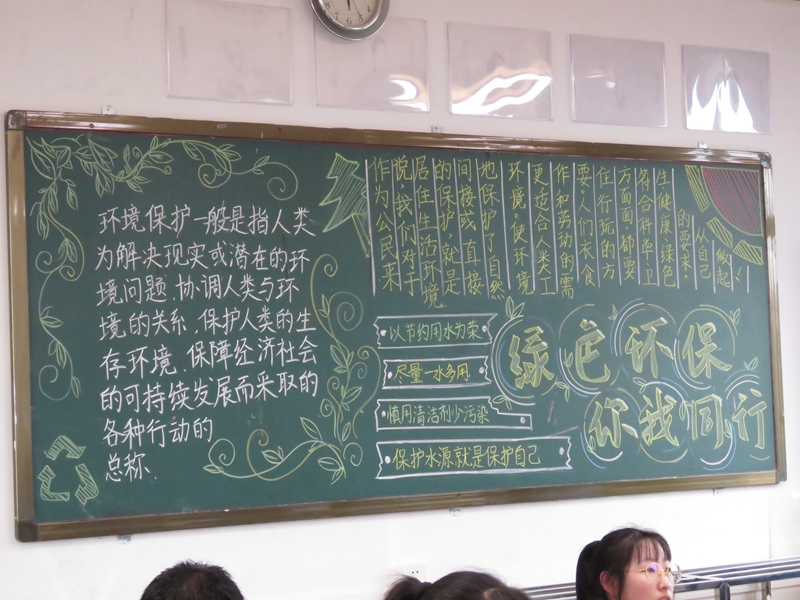 环境保护一般是指人类
为解决现实或潜在的环
境问题.协调人类与环
境的关系.保护人类的生
存环境.保障经济社会
的可持续发展而采取的
各种行动的
总称.
作为公民来
说,我们对于
居住生活环境
的保护,就是
间接或直接
地保护了自然
环境。使环境
更适合人类工
作和劳动的需
要;人们衣食
住行玩的方
方面面,都要
符合科学、卫
生、健康、绿色
的要求
从自己
做起!
以节约用水为荣
尽量一水多用
慎用清洁剂少污染
保护水源就是保护自己
绿色环保
你我同行